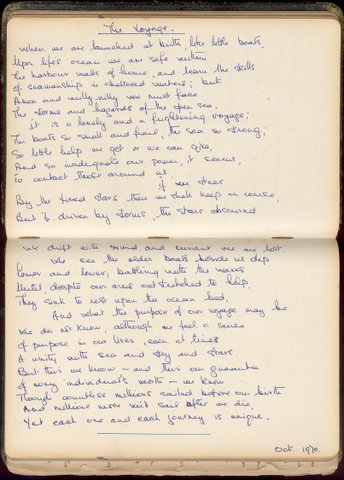 The Voyage.
When we are launched at birth, like little boats,
Upon life's ocean we are safe within
The harbour walls of home, and learn the skills
of seamanship in sheltered waters; but
Anon and willy-nilly we must face
The storms and hazards of the open sea.
It is a lonely and a frightening voyage;
The boats so small and frail, the sea so strong;
So little help we get or we can give,
And so inadequate our power, it seems,
To contact those around us.
If we steer
By the fixed stars then we shall keep on course,
But if, driven by storms, the stars obscured
We drift with wind and current we are lost.
We see the older boats beside us dip
lower and lower, battling with the waves
Until, despite our arms outstretched to help,
They sink to rest upon the ocean bed.
And what the purpose of our voyage may be
We do not know, although we feel a sense
of purpose in our lives, even at times
A unity with sea and sky and stars.
But this we know – and this our guarantee
of every individual's worth – we know
Though countless millions sailed before our birth
And millions more will sail after we die
Yet each one and each journey is unique.
Oct. 1970.